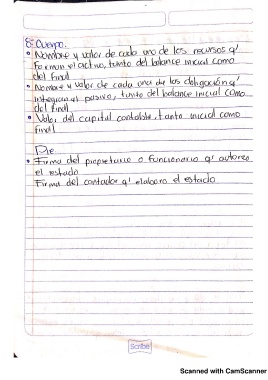 Cuerpo:
• Nombre y valor de cada uno de los recursos q'
Forman el activo, tanto del balance inicial como
del final
• Nombre y valor de cada una de las obligación q'
integran el pasivo, tanto del balance inicial como
del final
• Valor del capital contable, tanto inicial como
final
Pie
• Firma del propietario o funcionario q' autoriza
el estado
Firma del contador q' elaboro el estado
Scribe
Scanned with CamScanner